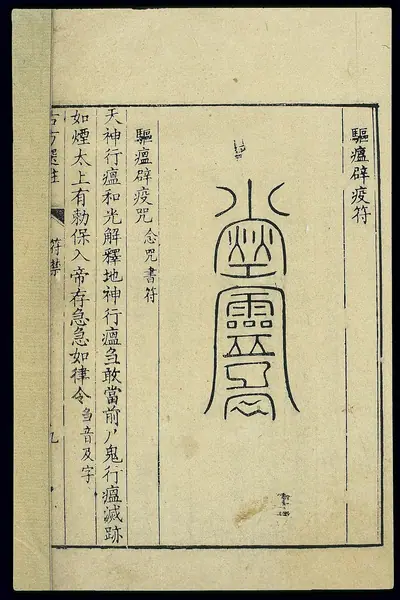 驅瘟辟疫符
驅瘟辟疫咒 念咒書符
天神行瘟和光解釋地神行瘟刍敢當前丿鬼行瘟滅跡
如煙太上有勅保入帝存急急如律令 刍音及字
符禁